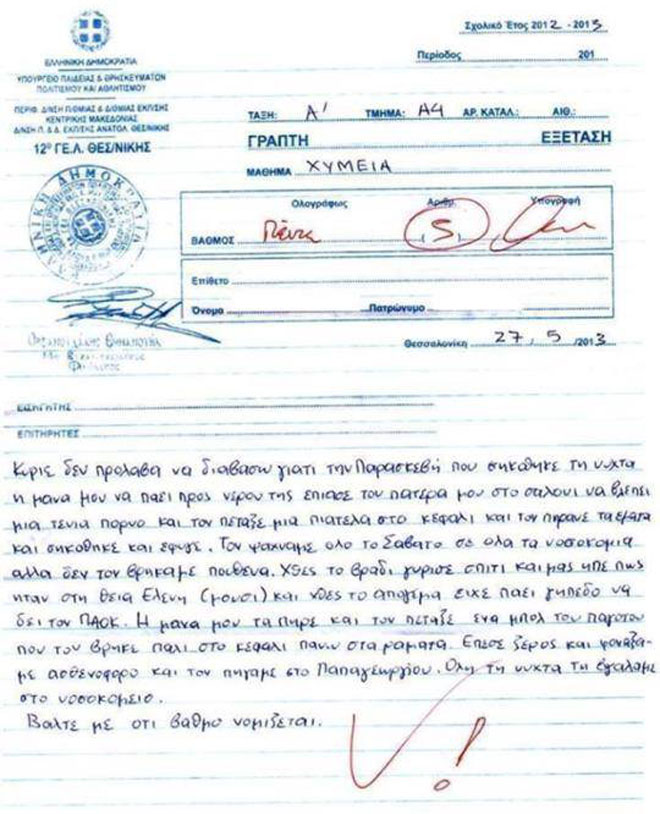 Σχολικό Έτος 2012 - 2013
Περίοδος 201
ΕΛΛΗΝΙΚΗ ΔΗΜΟΚΡΑΤΙΑ
ΥΠΟΥΡΓΕΙΟ ΠΑΙΔΕΙΑΣ & ΘΡΗΣΚΕΥΜΑΤΩΝ
ΠΟΛΙΤΙΣΜΟΥ ΚΑΙ ΑΘΛΗΤΙΣΜΟΥ
ΠΕΡΙΦ. Δ/ΝΣΗ Π/ΘΜΙΑΣ & Δ/ΘΜΙΑΣ ΕΚΠ/ΣΗΣ
ΚΕΝΤΡΙΚΗΣ ΜΑΚΕΔΟΝΙΑΣ
Δ/ΝΣΗ Π. & Δ. ΕΚΠ/ΣΗΣ ΑΝΑΤΟΛ. ΘΕΣ/ΝΙΚΗΣ
12º ΓΕ.Λ. ΘΕΣ/ΝΙΚΗΣ
ΤΑΞΗ: Α' ΤΜΗΜΑ: Α4 ΑΡ. ΚΑΤΑΛ.: ΑΙΘ.:
ΓΡΑΠΤΗ ΕΞΕΤΑΣΗ
ΜΑΘΗΜΑ ΧΥΜΕΙΑ
Ολογράφως Αριθμ. Υπογραφή
ΒΑΘΜΟΣ Πέντε 5
Επίθετο
Όνομα Πατρώνυμο
Θεσσαλονίκη 27, 5 /2013
ΕΙΣΗΓΗΤΗΣ
ΕΠΙΤΗΡΗΤΕΣ
Κυριε δεν προλαβα να διαβασω γιατι την Παρασκεβή που σηκόθηκε τη νυχτα
η μανα μου να παει προς νερου της επιασε τον πατερα μου στο σαλονι να βλεπει
μια τενια πορνο και τον πεταξε μια πιατελα στο κεφαλι και τον πηρανε τα εματα
και σηκοθηκε και εφυγε. Τον ψαχναμε ολο το Σαβατο σε ολα τα νοσοκομια
αλλα δεν τον βρηκαμε πουθενα. Χθες το βραδι γυρισε σπιτι και μας ηπε πως
ηταν στη θεια Ελενη (μουσι) και χθες το απογεμα ειχε παει γηπεδο να
δει τον ΠΑΟΚ. Η μανα μου τα πηρε και τον πεταξε ενα μπολ του παγοτου
που τον βρηκε παλι στο κεφαλι πανω στα ραματα. Επεσε ξερος και φοναξα-
με ασθενοφορο και τον πηγαμε στο Παπαγεωργιου. Ολη τη νυχτα τη εγαλαμε
στο νοσοκομειο.
Βαλτε με οτι βαθμο νομιζεται.